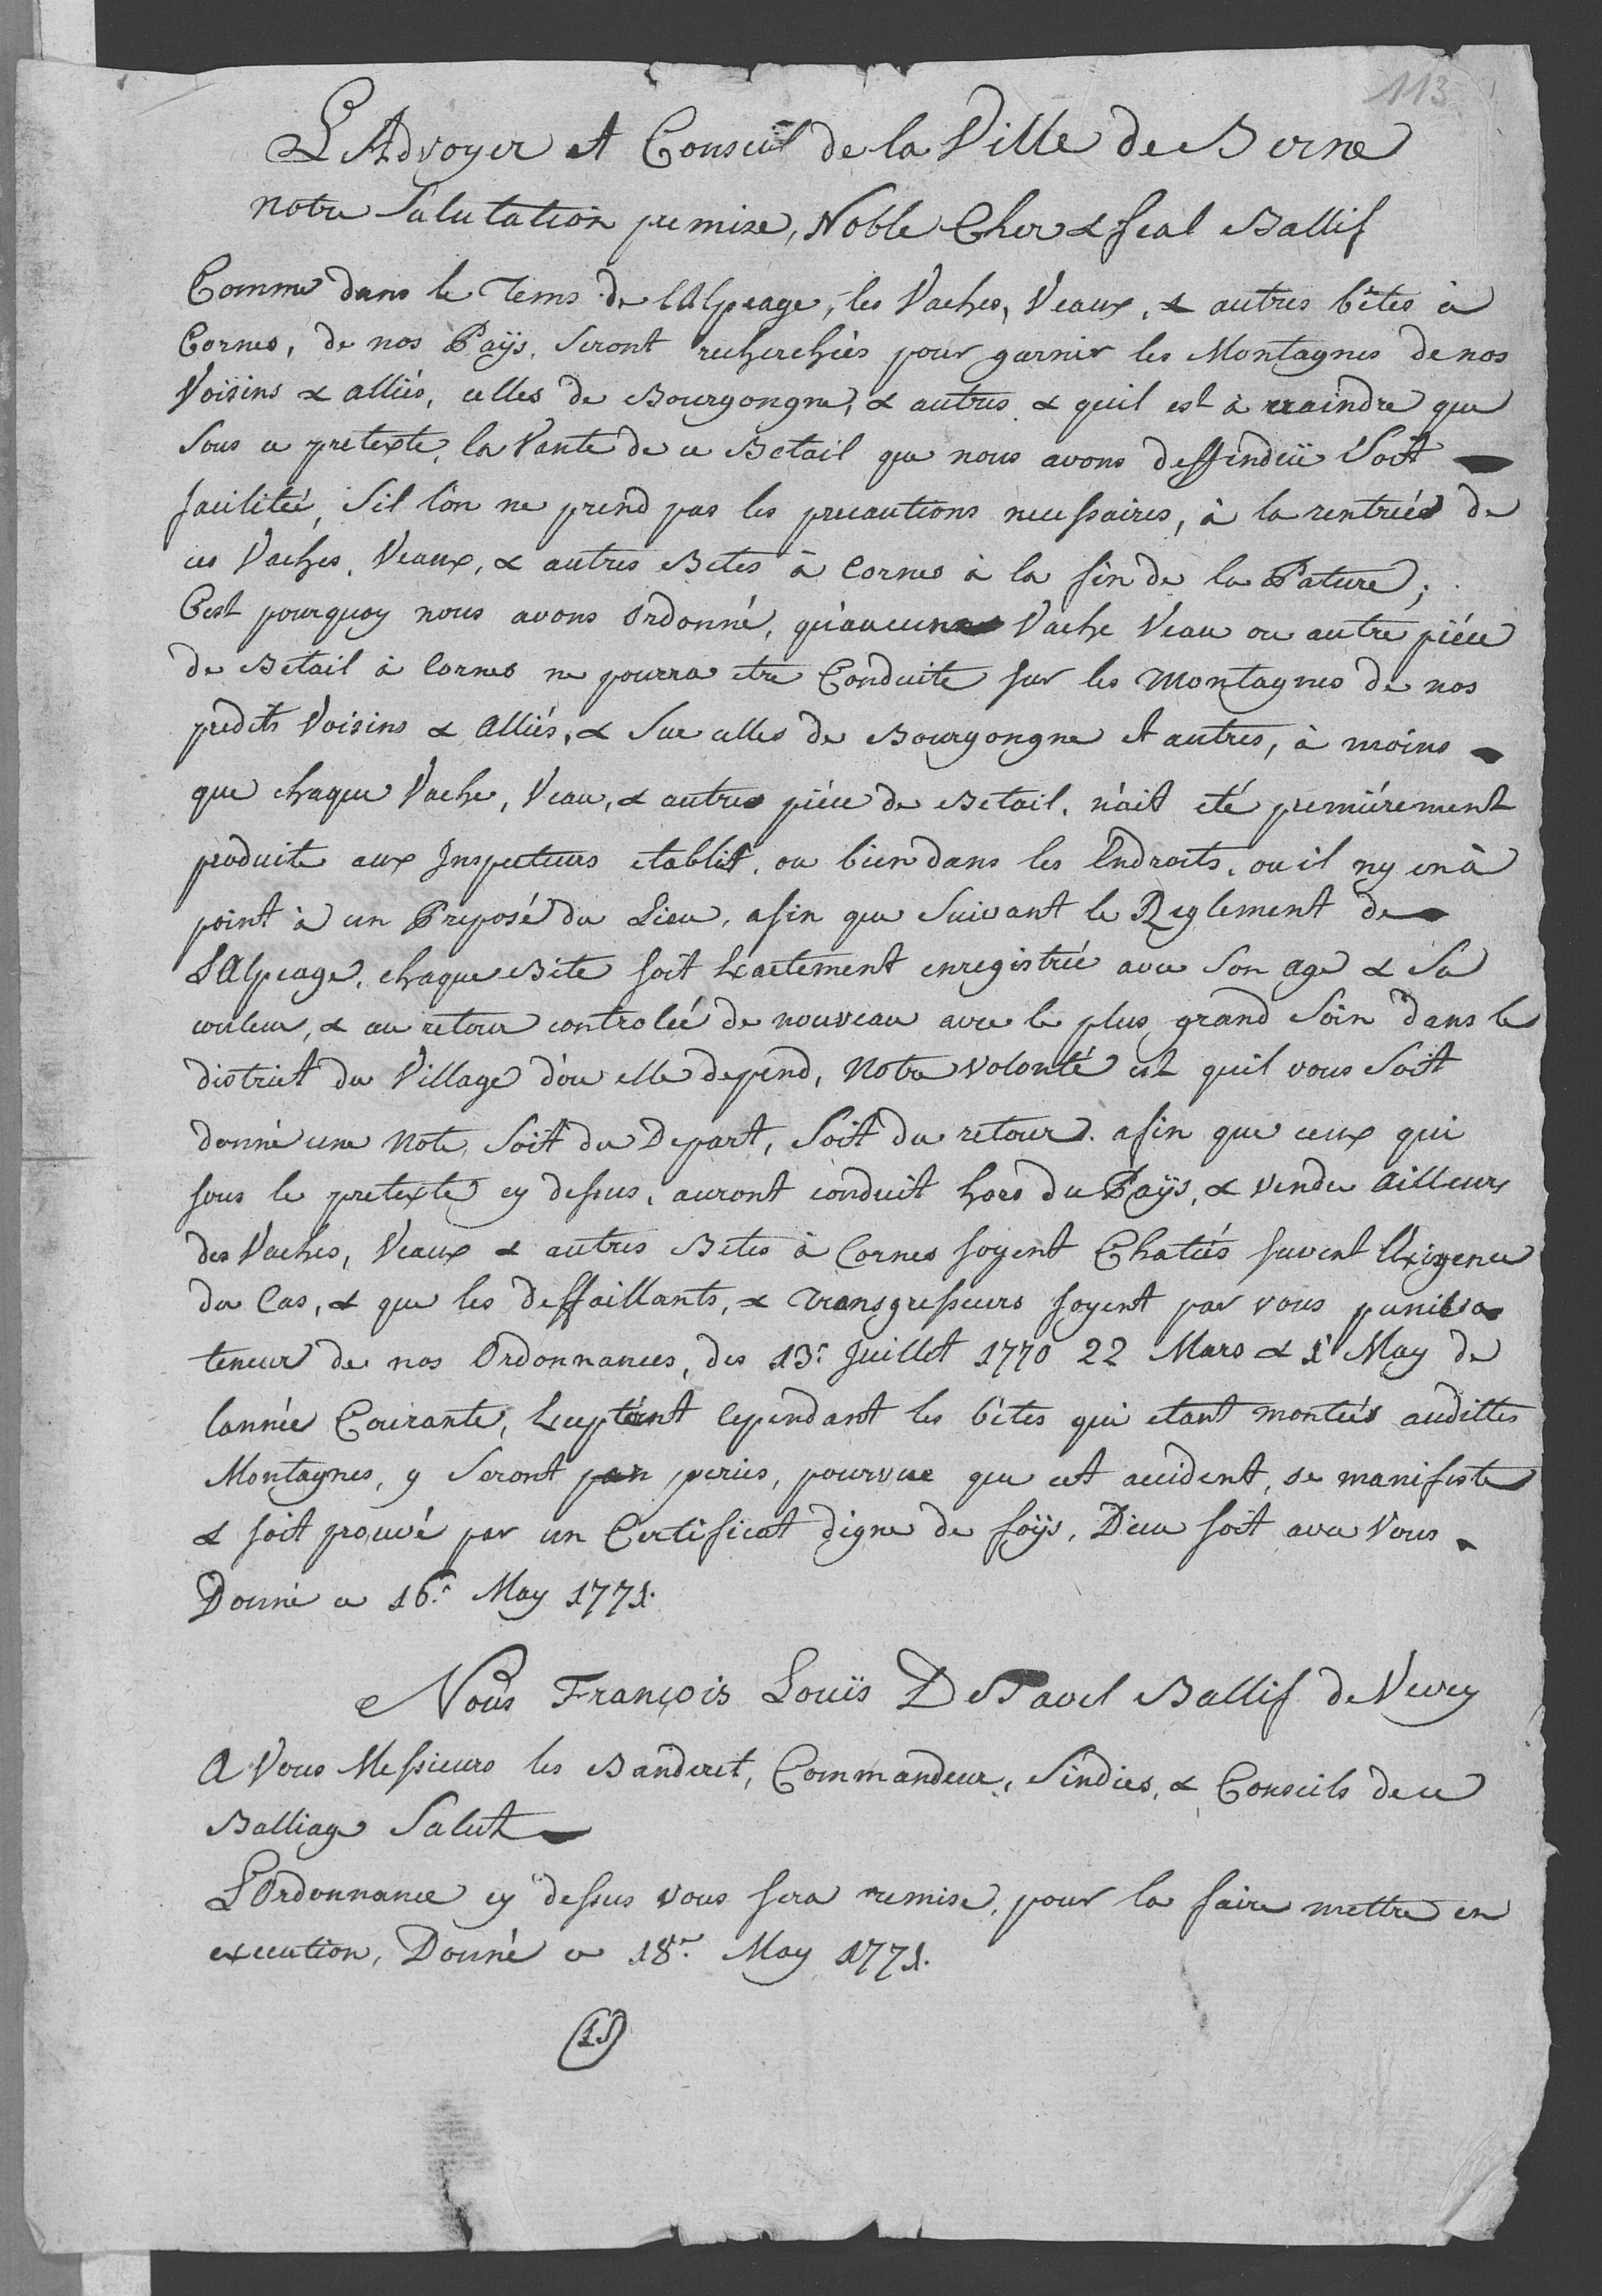 113
L'Advoyer et Conseil de la Ville de Berne
notre Salutation premise, Noble Cher & feal Ballif
Comme dans le Tems de l'Alpeage, les Vaches, Veaux, & autres bêtes à
Cornes, de nos Païs, Seront recherchées pour garnir les Montagnes de nos
Voisins & alliés, celles de Bourgongne, & autres & quil est à craindre que
Sous ce pretexte, la Vente de ce Betail que nous avons deffendüe Soit
facilitée, Sil l'on ne prend pas les precautions necessaires, à la rentrée de
ces Vaches, Veaux, & autres Betes à Cornes à la fin de la Pature;
C'est pourquoy nous avons Ordonné, qu'aucune Vache Veau ou autre piéce
de Betail à Cornes ne pourra etre Conduite sur les Montagnes de nos
predits Voisins & Alliés, & Sur celles de Bourgongne et autres, à moins
que chaque Vache, Veau, & autre piéce de Betail, n'ait eté premiérement
produite aux Inspecteurs etablis, ou bien dans les Endroits, ou il ny en à
point à un Preposé du Lieu, afin que Suivant le Reglement de
L'Alpeage, chaque Bete soit Exactement enregistrée avec Son age & Sa
couleur, & au retour controlée de nouveau avec le plus grand Soin dans le
district du Village d'ou elle depend, Notre volonté est quil vous Soit
donné une Note, Soit du Depart, Soit du retour, afin que ceux qui
sous le pretexte cy dessus, auront conduit hors du Païs, & vendu ailleurs
des Vaches, Veaux & autres Betes à Cornes soyent Chatiés suivent l'Exigence
du Cas, & que les deffaillants, & transgresseurs soyent par vous punis a
teneur de nos Ordonnances, des 13.e Juillet 1770 22 Mars & 1.r May de
l'année Courante, Exceptant Cependant les bêtes qui etant montées audittes
Montagnes, y Seront peries, pourvue que cet accident, se manifeste
& soit prouvé par un Certificat digne de foÿs, Dieu soit avec Vous.
Donné ce 16.e May 1771.
Nous François Louïs De Tavel Ballif de Vevey
A Vous Messieurs les Banderet, Commandeur, Sindics, & Conseils de ce
Balliage Salut
L'Ordonnance cy dessus vous sera remise, pour la faire mettre en
execution, Donné ce 18.e May 1771.
LS